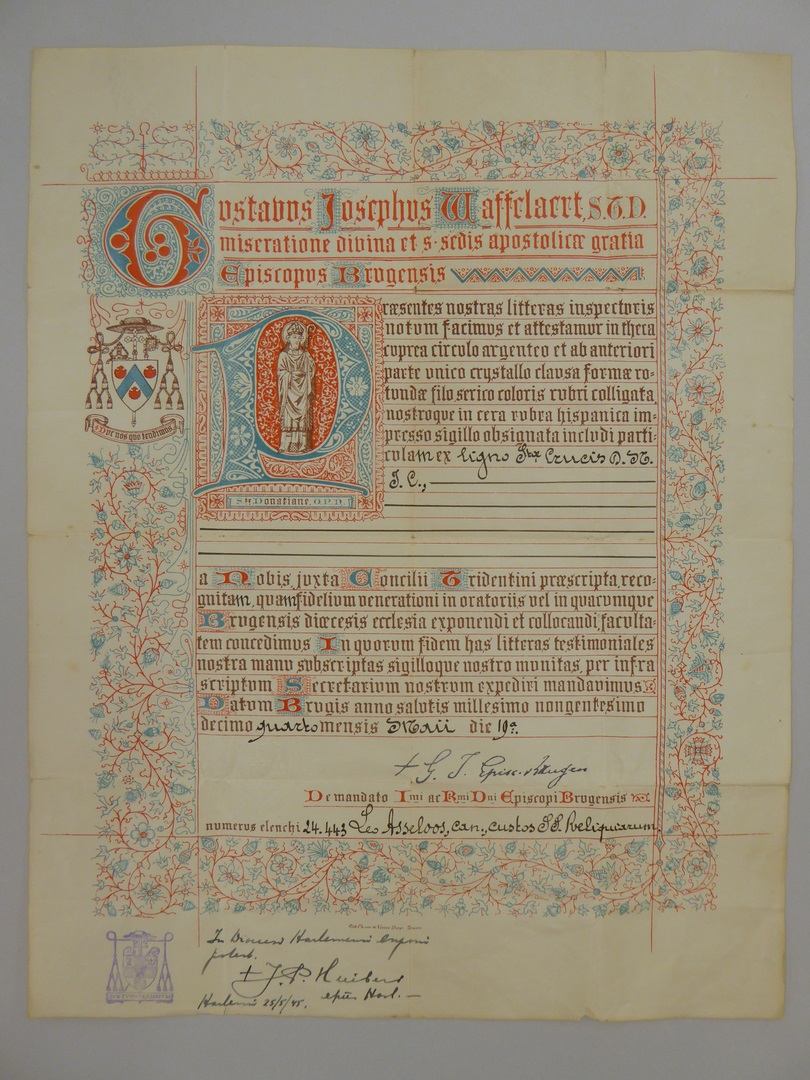 Gustavus Josephus Waffelaert, S.T.D.
miseratione divina et s. sedis apostolicæ gratia
Episcopus Brugensis
Duc nos quo tendimus
Præsentes nostras litteras inspecturis
notum facimus et attestamur in theca
cuprea circulo argenteo et ab anteriori
parte unico crystallo clausa formæ ro-
tundæ filo serico coloris rubri colligata
nostroque in cera rubra hispanica im-
presso sigillo obsignata includi parti-
culam ex ligno Stæ Crucis D. N.
J. C.,
S. Donatiane. O.P.N.
a Nobis, juxta Concilii Tridentini præscripta, reco-
gnitam, quam fidelium venerationi in oratoriis vel in quacumque
Brugensis diœcesis ecclesia exponendi et collocandi, faculta-
tem concedimus In quorum fidem has litteras testimoniales
nostra manu subscriptas sigilloque nostro munitas, per infra
scriptum Secretarium nostrum expediri mandavimus
Datum Brugis anno salutis millesimo nongentesimo
decimo quarto mensis Maii die 19ª.
+ G. J. Episc. Brugen
De mandato Imi ac Rmi Dni Episcopi Brugensis
numerus elenchi 24.443 Leo Asseloos, can., custos SS. Reliquiarum
In Diocesi Harlemensi exponi
potest.
+ J. P. Huibers
Harlemi 25/5/45. epus Harl.